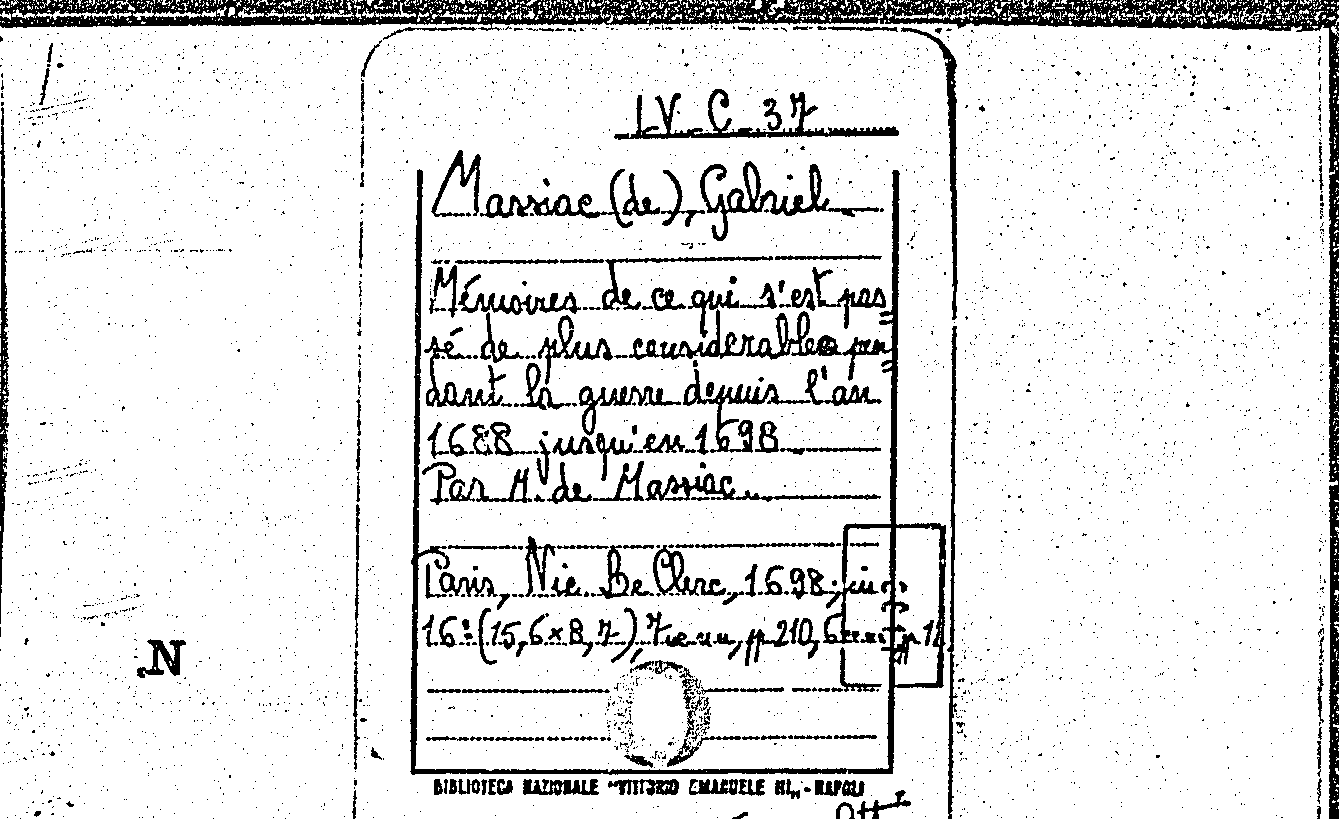 LV C 37
Massiac (de), Gabriel
Mémoires de ce qui s'est pas
sé de plus considerable pen
dant la guerre depuis l'an
1688 jusqu'en 1698
Par M. de Massiac
Paris, Nic Le Clerc, 1698; in
16º (15,6x8,7), 7 cc nn, pp 210, 6
BIBLIOTECA NAZIONALE "VITTORIO EMANUELE III" - NAPOLI
N